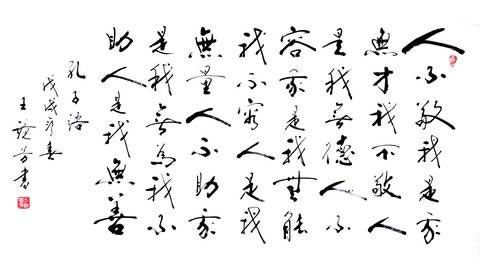 人不敬我是我
無才我不敬人
是我無德人不
容我是我無能
我不容人是我
無量人不助我
是我無為我不
助人是我無善
孔子語
戊戌年春
王 芳書